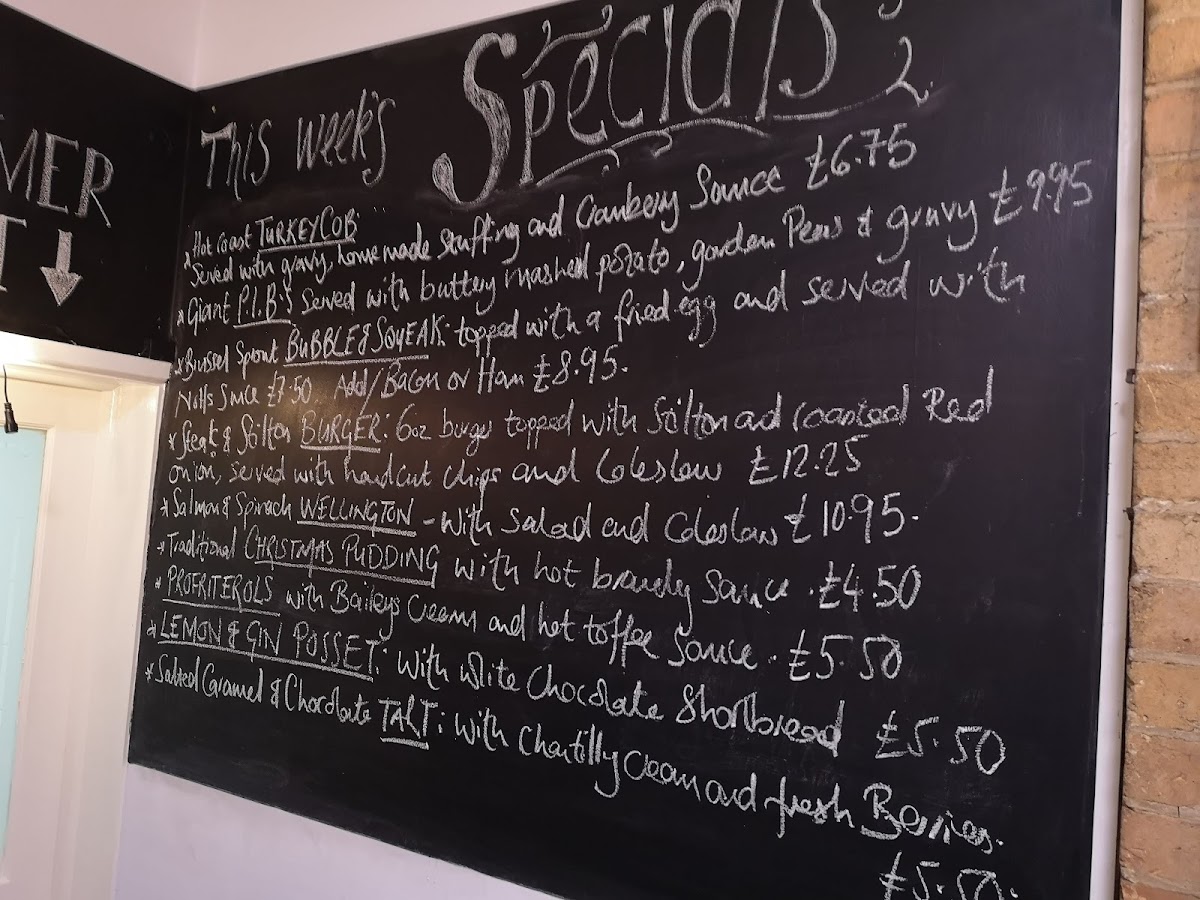 MER
This week's Specials
* Hot Roast TURKEY COB
Served with gravy, homemade Stuffing and Cranberry Sauce £6.75
* Giant P.I.B's Served with buttery mashed potato, garden Peas & gravy £9.95
* Brussel Sprout BUBBLE & SQUEAK: topped with a fried egg and served with
Notts Sauce £7.50 Add/Bacon or Ham £8.95.
* Steak & Stilton BURGER: 6oz burger topped with Stilton and roasted Red
onion, served with handcut chips and Coleslaw £12.25
* Salmon & Spinach WELLINGTON - with Salad and Coleslaw £10.95.
* Traditional CHRISTMAS PUDDING with hot brandy Sauce . £4.50
* PROFRITEROLS with Baileys Cream and hot toffee Sauce . £5.50
* LEMON & GIN POSSET: with White Chocolate Shortbread £5.50
* Salted Caramel & Chocolate TART: with Chantilly Cream and fresh Berries.
£5.50.